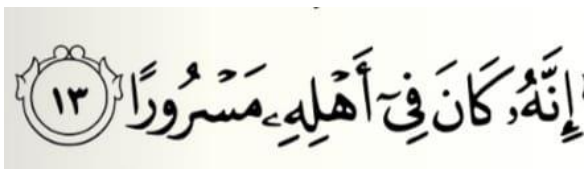 إِنَّهُۥ كَانَ فِىٓ أَهْلِهِۦ مَسْرُورًا ١٣